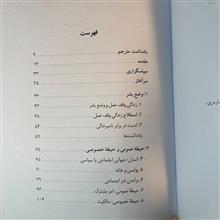 فهرست
یادداشت مترجم ۹
مقدمه
سپاسگزاری ۳۵
سرآغاز
۱. وضع بشر ۴۳
۱. زندگی وقف عمل و وضع بشر ۴۳
۲. اصطلاح زندگی وقف عمل
۳. ابدیت در برابر نامیرندگی
یادداشت‌ها ۵۹
۲. حیطهٔ عمومی و حیطهٔ خصوصی ۶۵
۴. انسان: حیوانی اجتماعی یا سیاسی
۵. پولیس و خانه
۶. برآمدن امر اجتماعی
۷. حیطهٔ عمومی: امر مشترک
۸. حیطهٔ خصوصی: مالکیت ۱۰۴